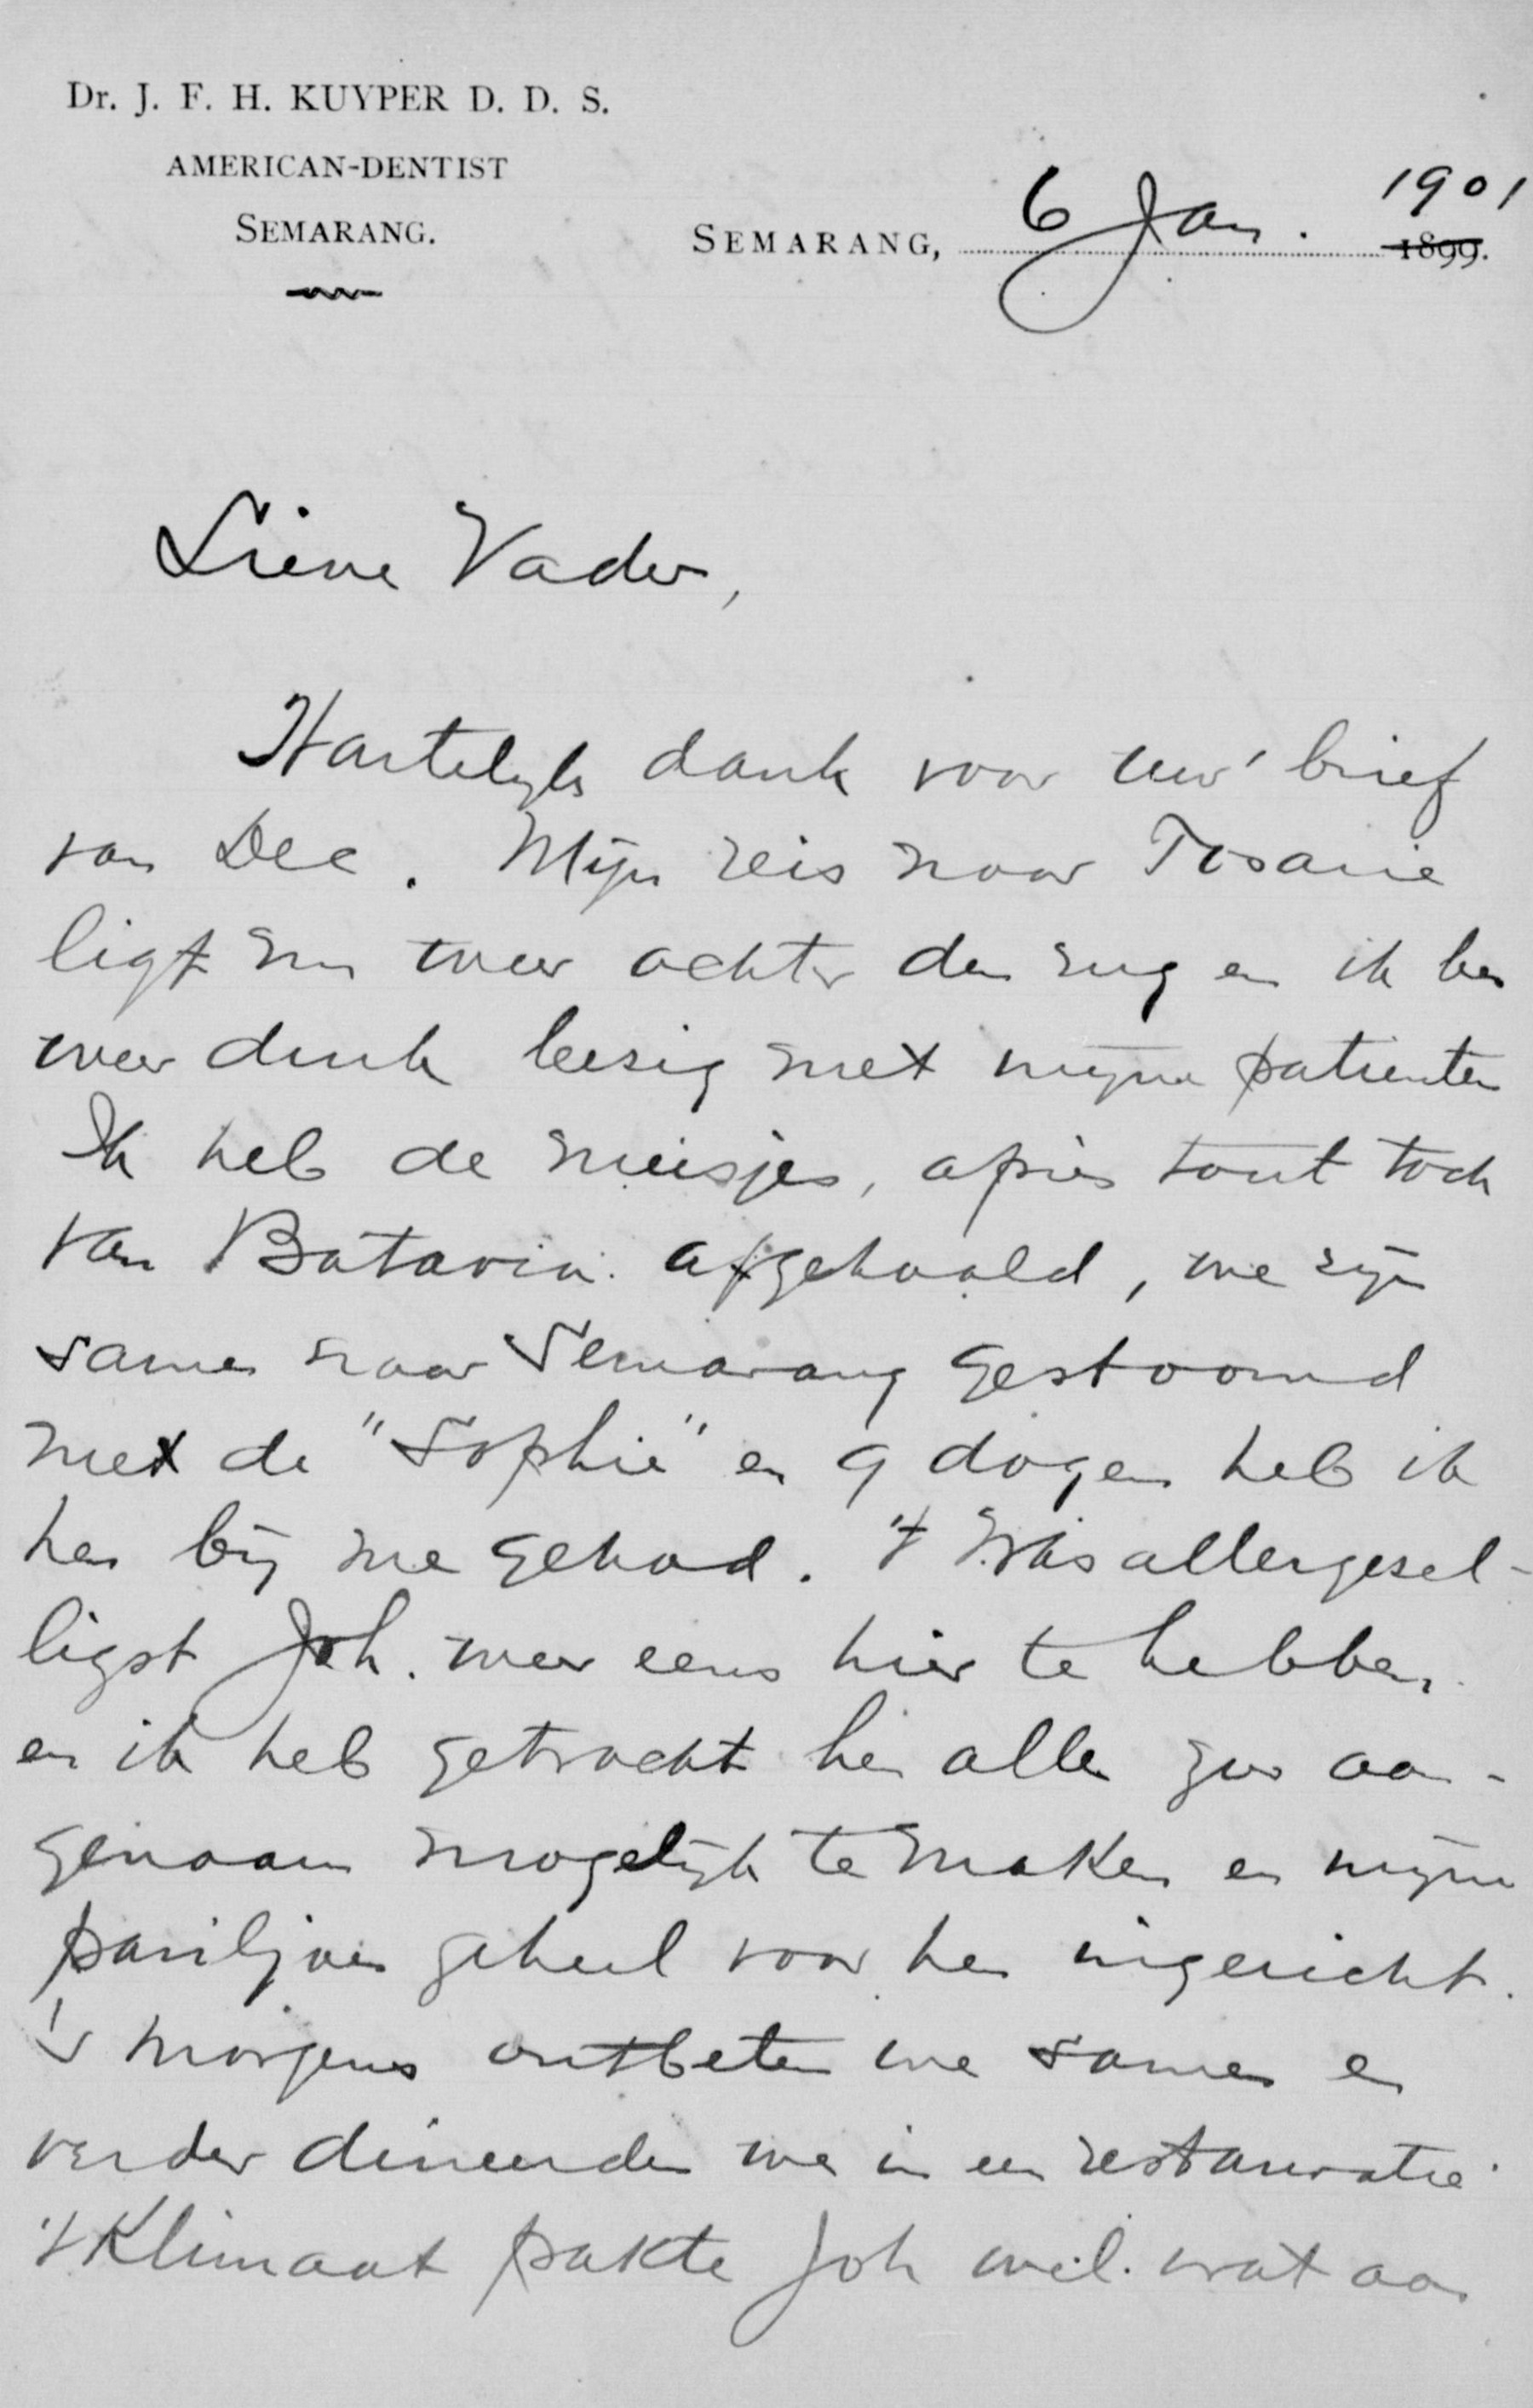 Dr. J. F. H. KUYPER D. D. S.
AMERICAN-DENTIST
SEMARANG.
SEMARANG, 6 Jan. 1901
1899.
Lieve Vader,
Hartelijk dank voor uw' brief
van Dec. Mijn reis naar Tosarie
ligt nu weer achter den rug en ik ben
weer druk bezig met mijne patienten
Ik heb de meisjes, après tout toch
van Batavia afgehaald, we zijn
samen naar Semarang gestoomd
met de "Sophie" en 9 dagen heb ik
hen bij me gehad. 't Was allergezel-
ligst Joh. weer eens hier te hebben
en ik heb getracht hen alles zoo aan-
genaam mogelijk te maken en mijne
paviljoen geheel voor hen ingericht.
's morgens ontbeten we samen en
verder dineerden we in een restauratie.
't Klimaat pakte Joh wel wat aan